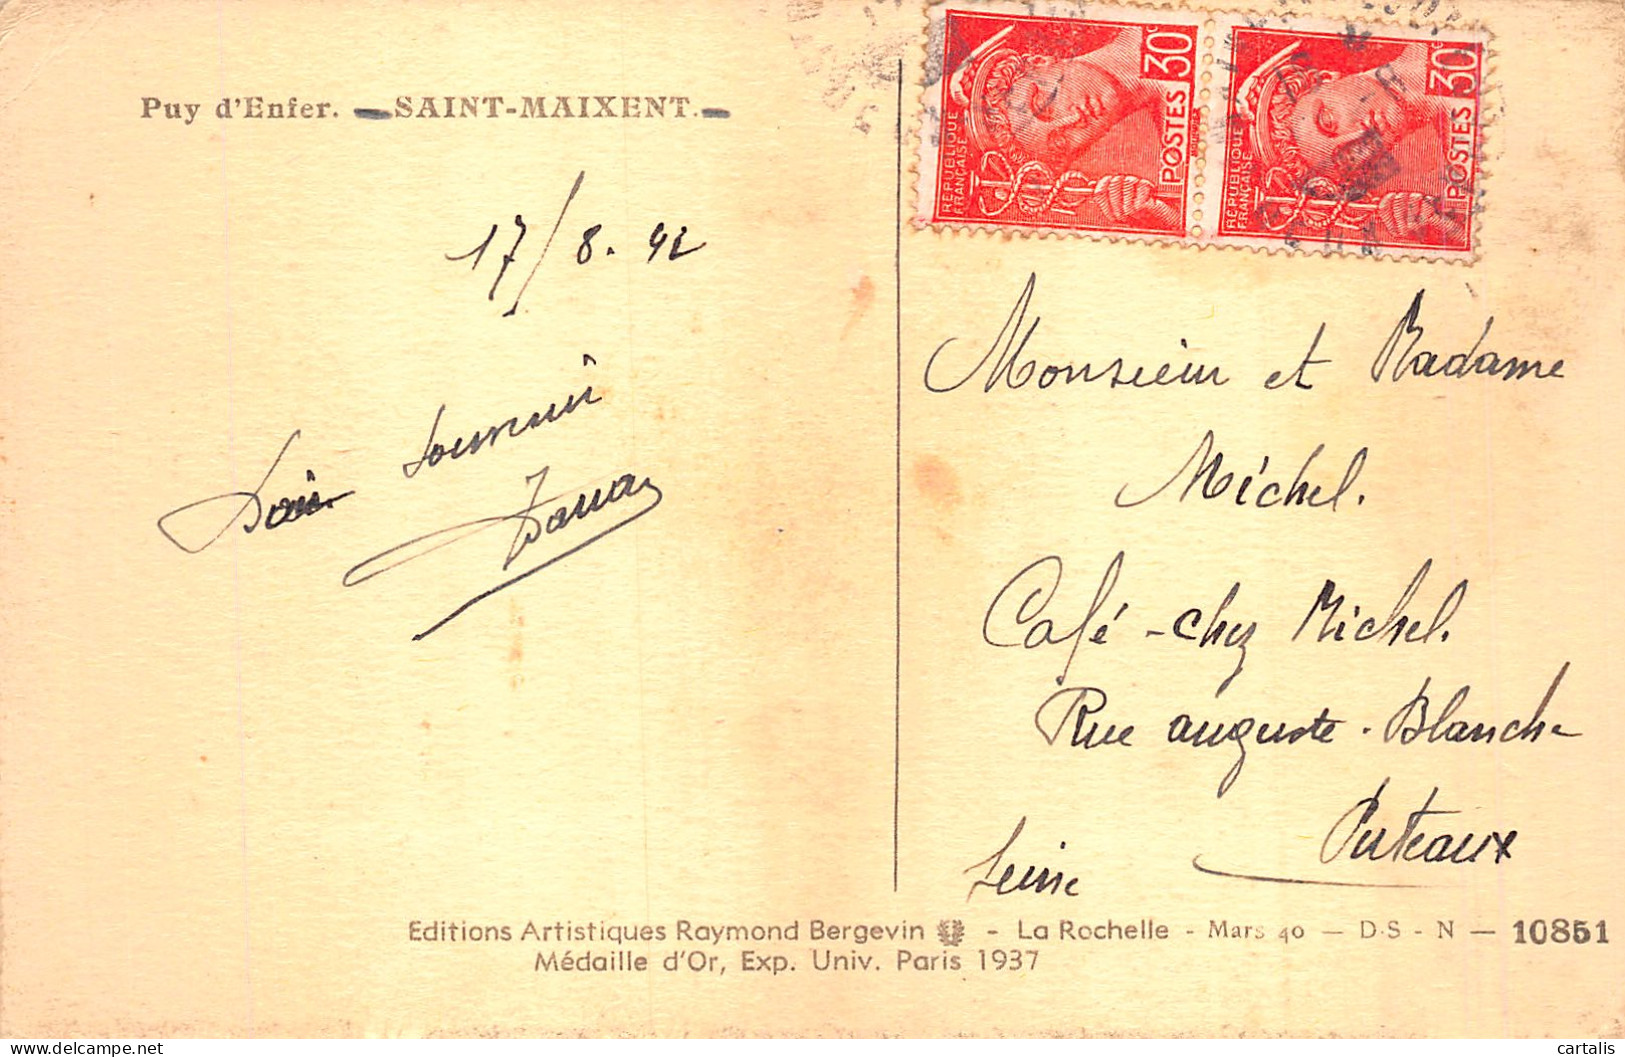 Puy d'Enfer. SAINT-MAIXENT.
17/8.42
Bon souvenir
30c
RÉPUBLIQUE
FRANÇAISE
POSTES
30c
RÉPUBLIQUE
FRANÇAISE
POSTES
Monsieur et Madame
Michel.
Café - chez Michel.
Rue auguste - Blanche
Puteaux
Seine
Editions Artistiques Raymond Bergevin - La Rochelle - Mars 40 — D·S - N — 10851
Médaille d'Or, Exp. Univ. Paris 1937
cartalis